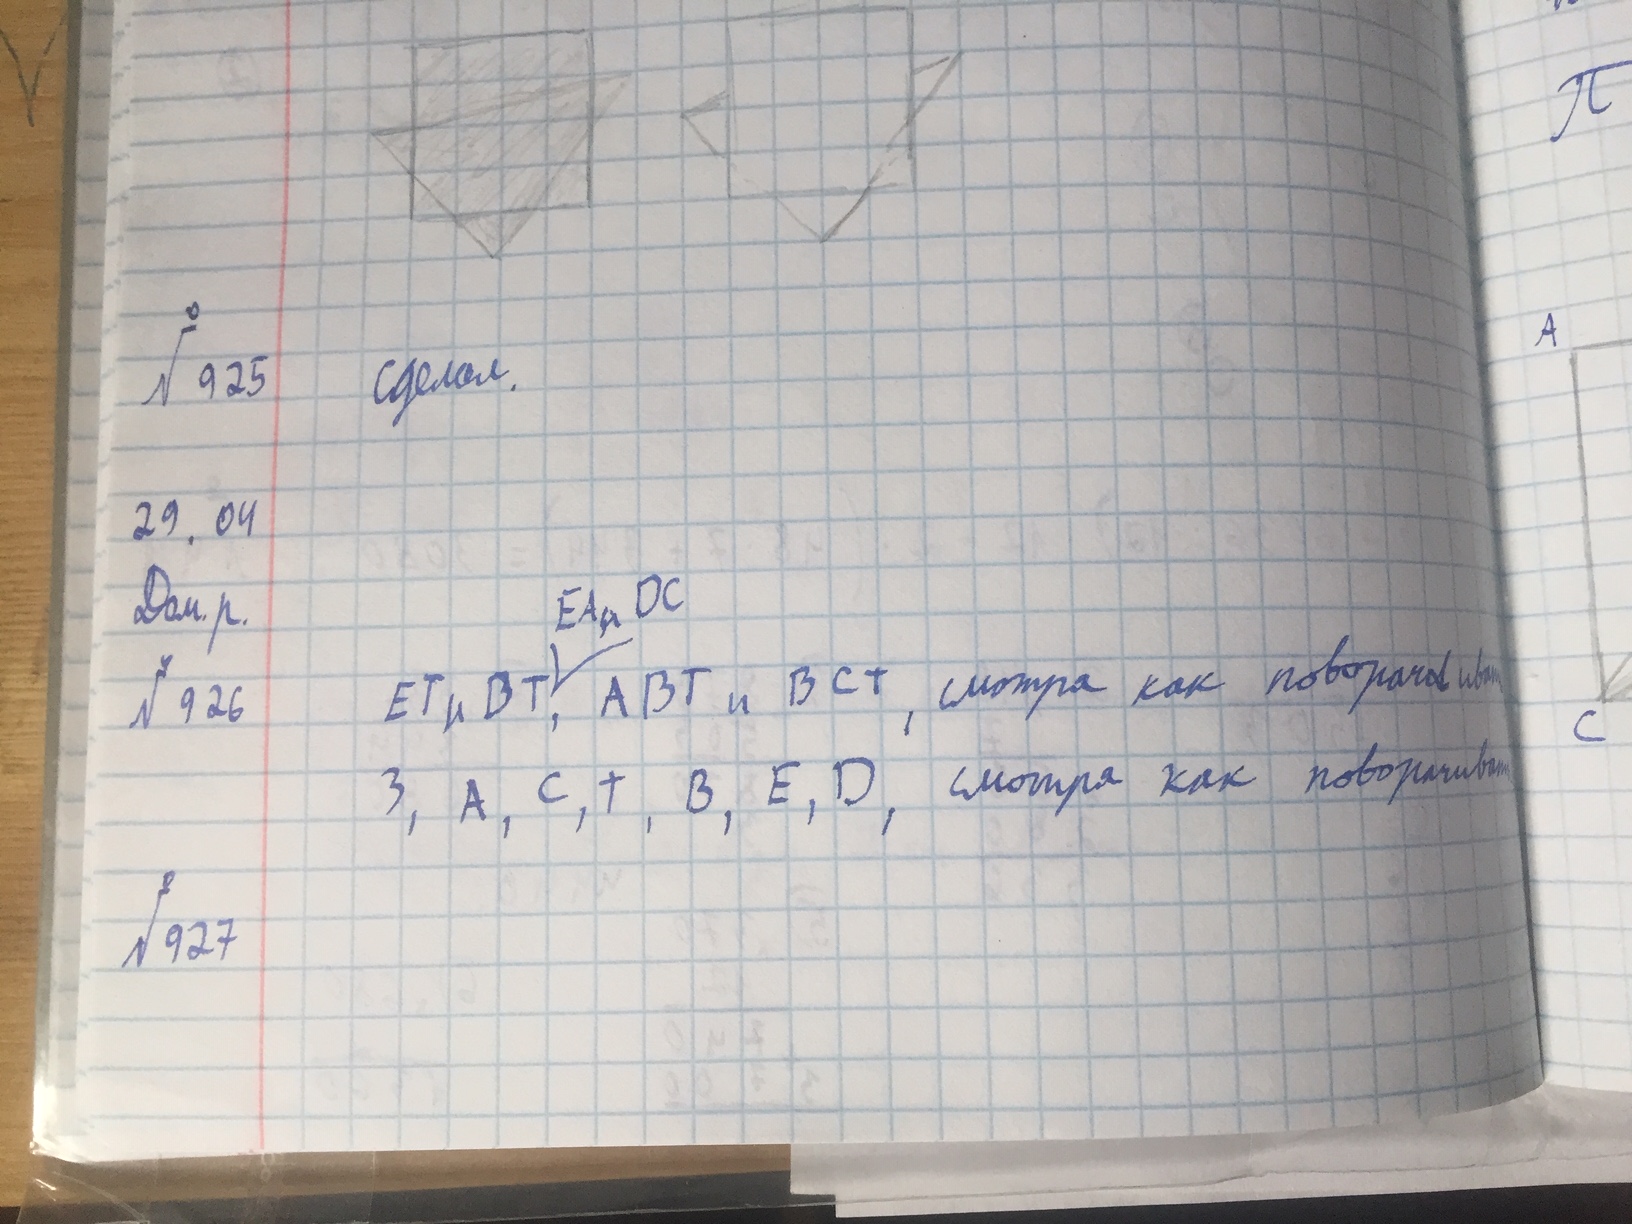 П
A
№ 925 Сделал.
29.04
Дом. р.
EA и DC
№ 926 ET и BT, ABT и BCT, смотря как поворачиват
C
3, A, C, T, B, E, D, смотря как поворачиват
№ 927